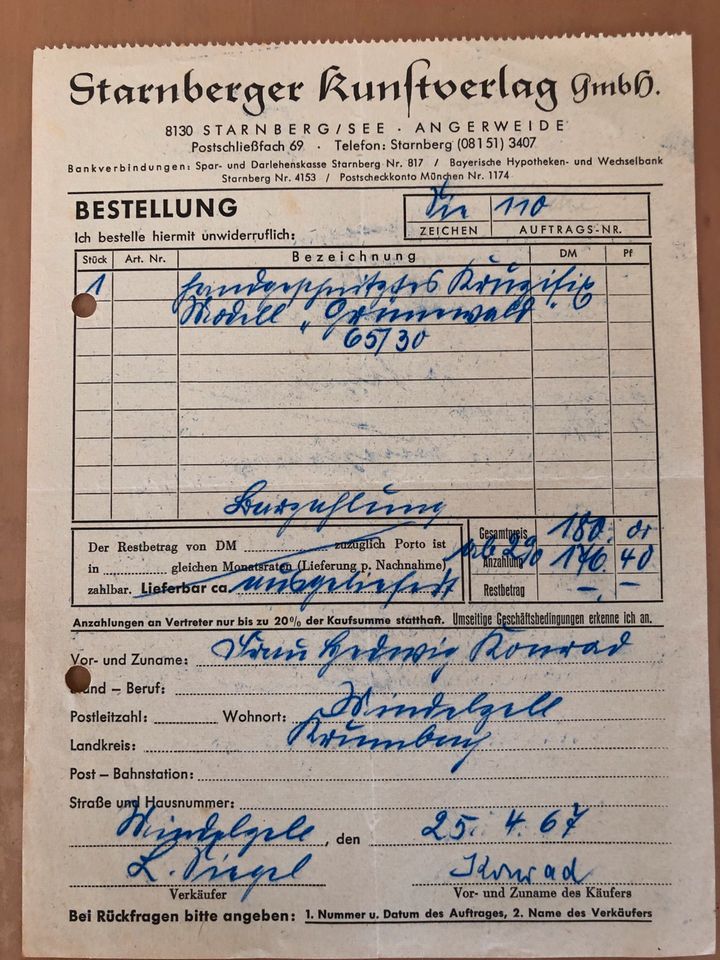 Starnberger Kunstverlag GmbH.
8130 STARNBERG/SEE · ANGERWEIDE
Postschließfach 69 · Telefon: Starnberg (08151) 3407
Bankverbindungen: Spar- und Darlehenskasse Starnberg Nr. 817 / Bayerische Hypotheken- und Wechselbank
Starnberg Nr. 4153 / Postscheckkonto München Nr. 1174
BESTELLUNG
Ich bestelle hiermit unwiderruflich:
110
ZEICHEN AUFTRAGS-NR.
Stück Art. Nr. Bezeichnung DM Pf
1 handgeschnitztes Kruzifix
Modell „Grünewald"
65/30
Barzahlung
Der Restbetrag von DM zuzüglich Porto ist
in gleichen Monatsraten (Lieferung p. Nachnahme)
zahlbar. Lieferbar ca. ausgeliefert
Gesamtpreis 180.
ab 2% Anzahlung 176. 40
Restbetrag —. —
Anzahlungen an Vertreter nur bis zu 20% der Kaufsumme statthaft. Umseitige Geschäftsbedingungen erkenne ich an.
Vor- und Zuname: Frau Hedwig Konrad
Stand – Beruf:
Postleitzahl: Wohnort: Mindelzell
Landkreis: Krumbach
Post – Bahnstation:
Straße und Hausnummer:
Mindelzell, den 25. 4. 67
L. Siegel Konrad
Verkäufer Vor- und Zuname des Käufers
Bei Rückfragen bitte angeben: 1. Nummer u. Datum des Auftrages, 2. Name des Verkäufers